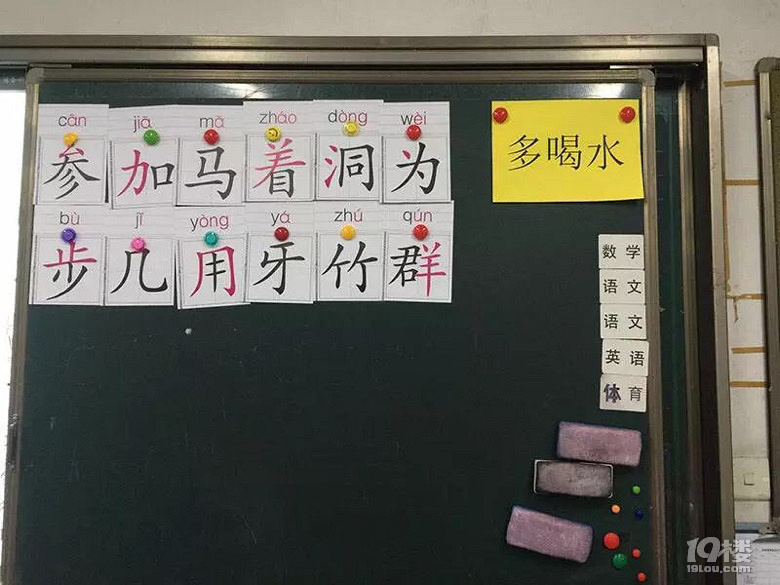 cān jiā mǎ zháo dòng wèi
参 加 马 着 洞 为
bù jǐ yòng yá zhú qún
步 几 用 牙 竹 群
多喝水
数 学
语 文
语 文
英 语
体 育
19楼
19lou.com